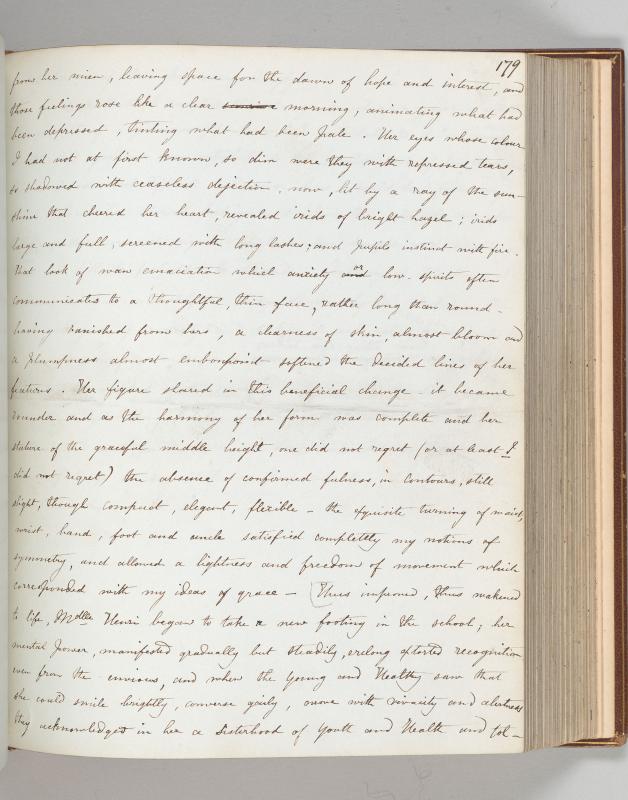 179
from her mien, leaving space for the dawn of hope and interest, and
those feelings rose like a clear morning, animating what had
been depressed, tinting what had been pale. Her eyes whose colour
I had not at first known, so dim were they with repressed tears,
so shadowed with ceaseless dejection, now, lit by a ray of the sun-
shine that cheered her heart, revealed irids of bright hazel; irids
large and full, screened with long lashes; and pupils instinct with fire.
That look of wan emaciation which anxiety and or low-spirits often
communicates to a thoughtful, thin face, rather long than round -
having vanished from hers, a clearness of skin, almost bloom and
a plumpness almost embonpoint softened the decided lines of her
features. Her figure shared in this beneficial change - it became
rounder and as the harmony of her form was complete and her
stature of the graceful middle height, one did not regret (or at least I
did not regret) the absence of confirmed fulness, in contours, still
slight, though compact, elegant, flexible - the exquisite turning of waist,
wrist, hand, foot and ancle satisfied completely my notions of
symmetry, and allowed a lightness and freedom of movement which
corresponded with my ideas of grace - Thus improved, thus wakened
to life, Mdlle Henri began to take a new footing in the school; her
mental power, manifested gradually but steadily, erelong extorted recognition
even from the envious, and when the young and Healthy saw that
she could smile brightly, converse gaily, move with vivacity and alertness
they acknowledged in her a sisterhood of Youth and Health and tol-